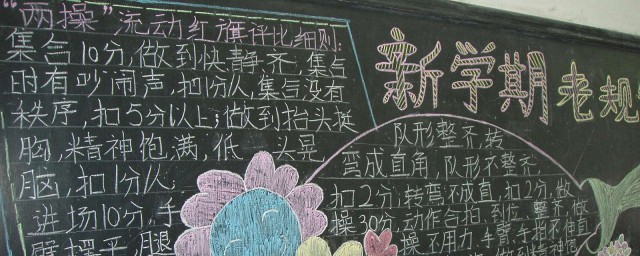 “两操”流动红旗评比细则:
集合10分,做到快静齐,集合
时有吵闹声,扣1分/人,集合没有
秩序,扣5分以上;做到抬头挺
胸,精神饱满,低头晃
脑,扣1分/人;
进场10分,手
臂摆平,腿
新学期老规
队形整齐,转
弯成直角,队形不整齐
扣2分;转弯不成直,扣2分,做
操30分,动作合拍,到位,整齐,做
操不用力,手臂,手指不伸直